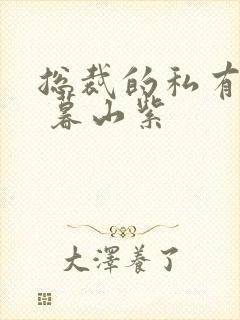 总裁的私有
暮山紫
大澤養了